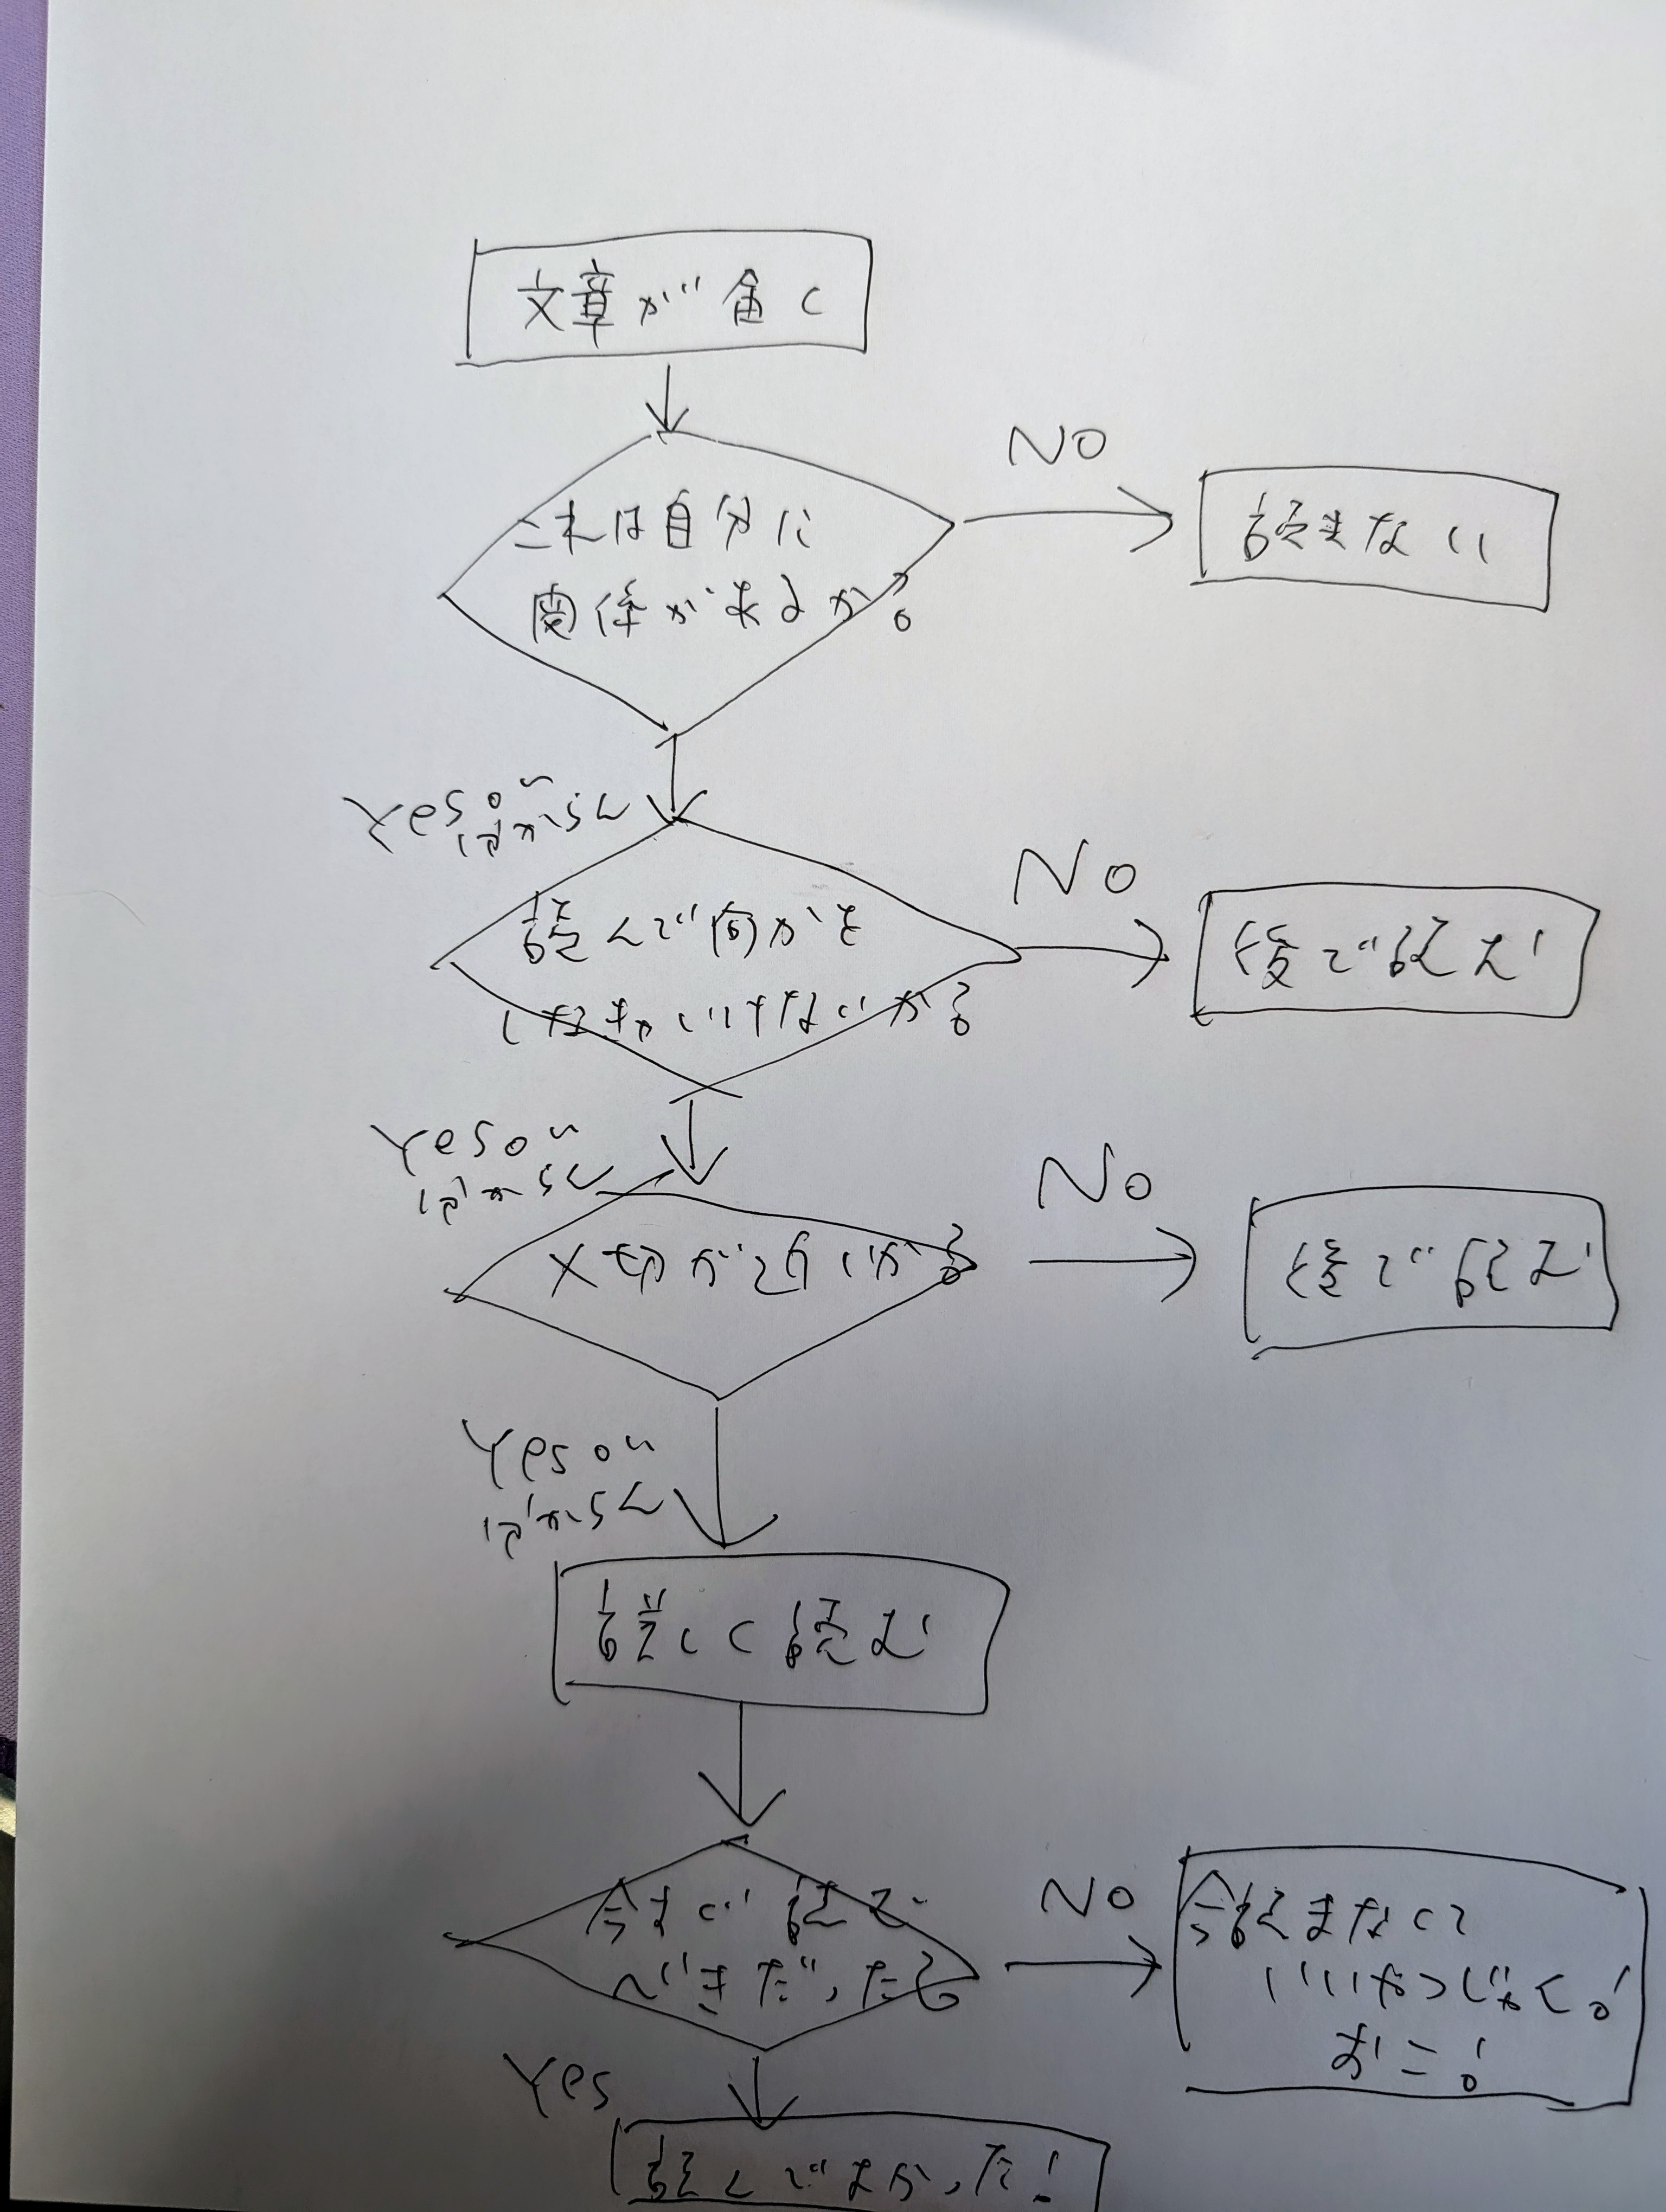 文章が届く
これは自分に
関係があるか?
NO
読まない
Yes or
わからん
読んで何かを
しなきゃいけないか?
NO
後で読む
Yes or
わからん
〆切が近いか?
NO
後で読む
Yes or
わからん
読む
今すぐ読む
べきだった?
NO
今読まなくて
いいやつじゃん!
おこ!
Yes
読んでよかった!